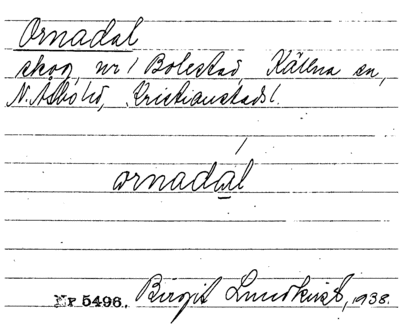 Ornadal
skog, nr 1 Bolestad, Källna sn,
N. Åsbo hd, Kristianstads l.
ornadál
Np 5496. Birgit Lundkvist, 1938.